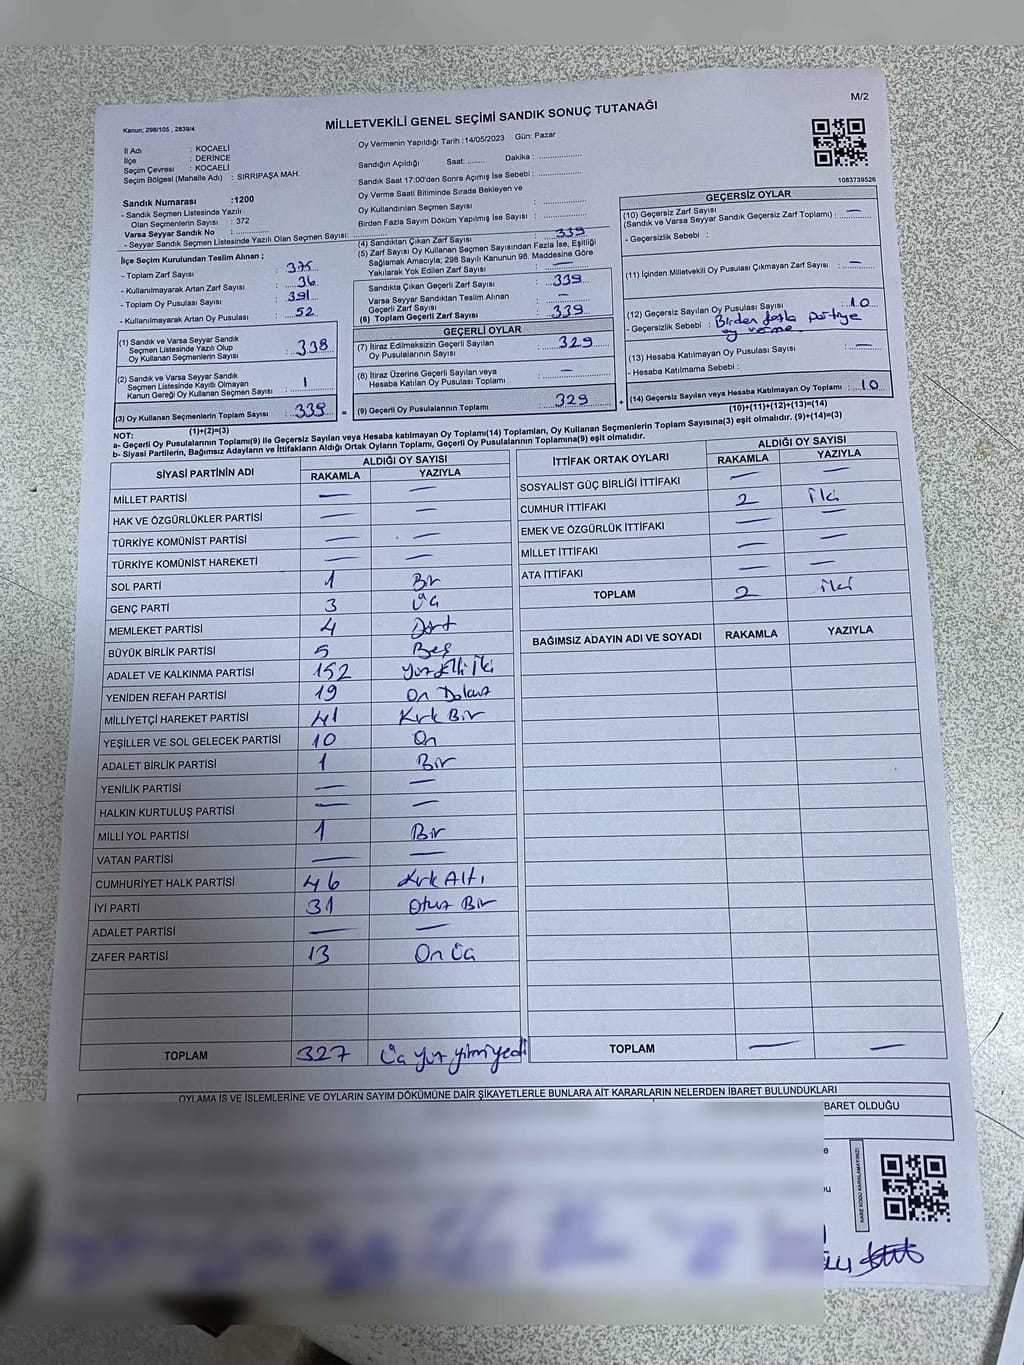 M/2
Kanun; 298/105 , 2839/4
MİLLETVEKİLİ GENEL SEÇİMİ SANDIK SONUÇ TUTANAĞI
İl Adı : KOCAELİ
İlçe : DERİNCE
Seçim Çevresi : KOCAELİ
Seçim Bölgesi (Mahalle Adı) : SIRRIPAŞA MAH.
Sandık Numarası :1200
- Sandık Seçmen Listesinde Yazılı
Olan Seçmenlerin Sayısı : 372
Varsa Seyyar Sandık No : ............
- Seyyar Sandık Seçmen Listesinde Yazılı Olan Seçmen Sayısı: ............
Oy Vermenin Yapıldığı Tarih :14/05/2023 Gün: Pazar
Sandığın Açıldığı Saat: ........ Dakika : ............
Sandık Saat 17:00'den Sonra Açımış İse Sebebi: ............
Oy Verme Saati Bitiminde Sırada Bekleyen ve
Oy Kullandırılan Seçmen Sayısı : ............
Birden Fazla Sayım Döküm Yapılmış İse Sayısı : ............
1083739526
İlçe Seçim Kurulundan Teslim Alınan ;
- Toplam Zarf Sayısı : 375
- Kullanılmayarak Artan Zarf Sayısı : 36
- Toplam Oy Pusulası Sayısı : 391
- Kullanılmayarak Artan Oy Pusulası : 52
(1) Sandık ve Varsa Seyyar Sandık
Seçmen Listesinde Yazılı Olup
Oy Kullanan Seçmenlerin Sayısı : 338
(2) Sandık ve Varsa Seyyar Sandık
Seçmen Listesinde Kayıtlı Olmayan
Kanun Gereği Oy Kullanan Seçmen Sayısı : 1
(3) Oy Kullanan Seçmenlerin Toplam Sayısı : 339 =
(1)+(2)=(3)
(4) Sandıktan Çıkan Zarf Sayısı : 339
(5) Zarf Sayısı Oy Kullanan Seçmen Sayısından Fazla İse, Eşitliği
Sağlamak Amacıyla; 298 Sayılı Kanunun 98. Maddesine Göre
Yakılarak Yok Edilen Zarf Sayısı : —
Sandıkta Çıkan Geçerli Zarf Sayısı : 339
Varsa Seyyar Sandıktan Teslim Alınan
Geçerli Zarf Sayısı : —
(6) Toplam Geçerli Zarf Sayısı : 339
GEÇERLİ OYLAR
(7) İtiraz Edilmeksizin Geçerli Sayılan
Oy Pusulalarının Sayısı : 329
(8) İtiraz Üzerine Geçerli Sayılan veya
Hesaba Katılan Oy Pusulası Toplamı : —
(9) Geçerli Oy Pusulalarının Toplamı : 329 +
GEÇERSİZ OYLAR
(10) Geçersiz Zarf Sayısı
(Sandık ve Varsa Seyyar Sandık Geçersiz Zarf Toplamı) : —
- Geçersizlik Sebebi :
(11) İçinden Milletvekili Oy Pusulası Çıkmayan Zarf Sayısı : —
(12) Geçersiz Sayılan Oy Pusulası Sayısı : 10
- Geçersizlik Sebebi : Birden fazla partiye
oy verme
(13) Hesaba Katılmayan Oy Pusulası Sayısı : —
- Hesaba Katılmama Sebebi :
(14) Geçersiz Sayılan veya Hesaba Katılmayan Oy Toplamı : 10
(10)+(11)+(12)+(13)=(14)
NOT:
a- Geçerli Oy Pusulalarının Toplamı(9) ile Geçersiz Sayılan veya Hesaba katılmayan Oy Toplamı(14) Toplamları, Oy Kullanan Seçmenlerin Toplam Sayısına(3) eşit olmalıdır. (9)+(14)=(3)
b- Siyasi Partilerin, Bağımsız Adayların ve İttifakların Aldığı Ortak Oyların Toplamı, Geçerli Oy Pusulalarının Toplamına(9) eşit olmalıdır.
SİYASİ PARTİNİN ADI ALDIĞI OY SAYISI
RAKAMLA YAZIYLA
MİLLET PARTİSİ — —
HAK VE ÖZGÜRLÜKLER PARTİSİ — —
TÜRKİYE KOMÜNİST PARTİSİ — —
TÜRKİYE KOMÜNİST HAREKETİ — —
SOL PARTİ 1 Bir
GENÇ PARTİ 3 Üç
MEMLEKET PARTİSİ 4 Dört
BÜYÜK BİRLİK PARTİSİ 5 Beş
ADALET VE KALKINMA PARTİSİ 152 Yüz Elli İki
YENİDEN REFAH PARTİSİ 19 On Dokuz
MİLLİYETÇİ HAREKET PARTİSİ 41 Kırk Bir
YEŞİLLER VE SOL GELECEK PARTİSİ 10 On
ADALET BİRLİK PARTİSİ 1 Bir
YENİLİK PARTİSİ — —
HALKIN KURTULUŞ PARTİSİ — —
MİLLİ YOL PARTİSİ 1 Bir
VATAN PARTİSİ — —
CUMHURİYET HALK PARTİSİ 46 Kırk Altı
İYİ PARTİ 31 Otuz Bir
ADALET PARTİSİ — —
ZAFER PARTİSİ 13 On Üç
TOPLAM 327 Üç yüz yirmi yedi
İTTİFAK ORTAK OYLARI ALDIĞI OY SAYISI
RAKAMLA YAZIYLA
SOSYALİST GÜÇ BİRLİĞİ İTTİFAKI — —
CUMHUR İTTİFAKI 2 İki
EMEK VE ÖZGÜRLÜK İTTİFAKI — —
MİLLET İTTİFAKI — —
ATA İTTİFAKI — —
TOPLAM 2 İki
BAĞIMSIZ ADAYIN ADI VE SOYADI RAKAMLA YAZIYLA
TOPLAM — —
OYLAMA İŞ VE İŞLEMLERİNE VE OYLARIN SAYIM DÖKÜMÜNE DAİR ŞİKAYETLERLE BUNLARA AİT KARARLARIN NELERDEN İBARET BULUNDUKLARI
BARET OLDUĞU
KARE KODU KARALAMAYINIZ!